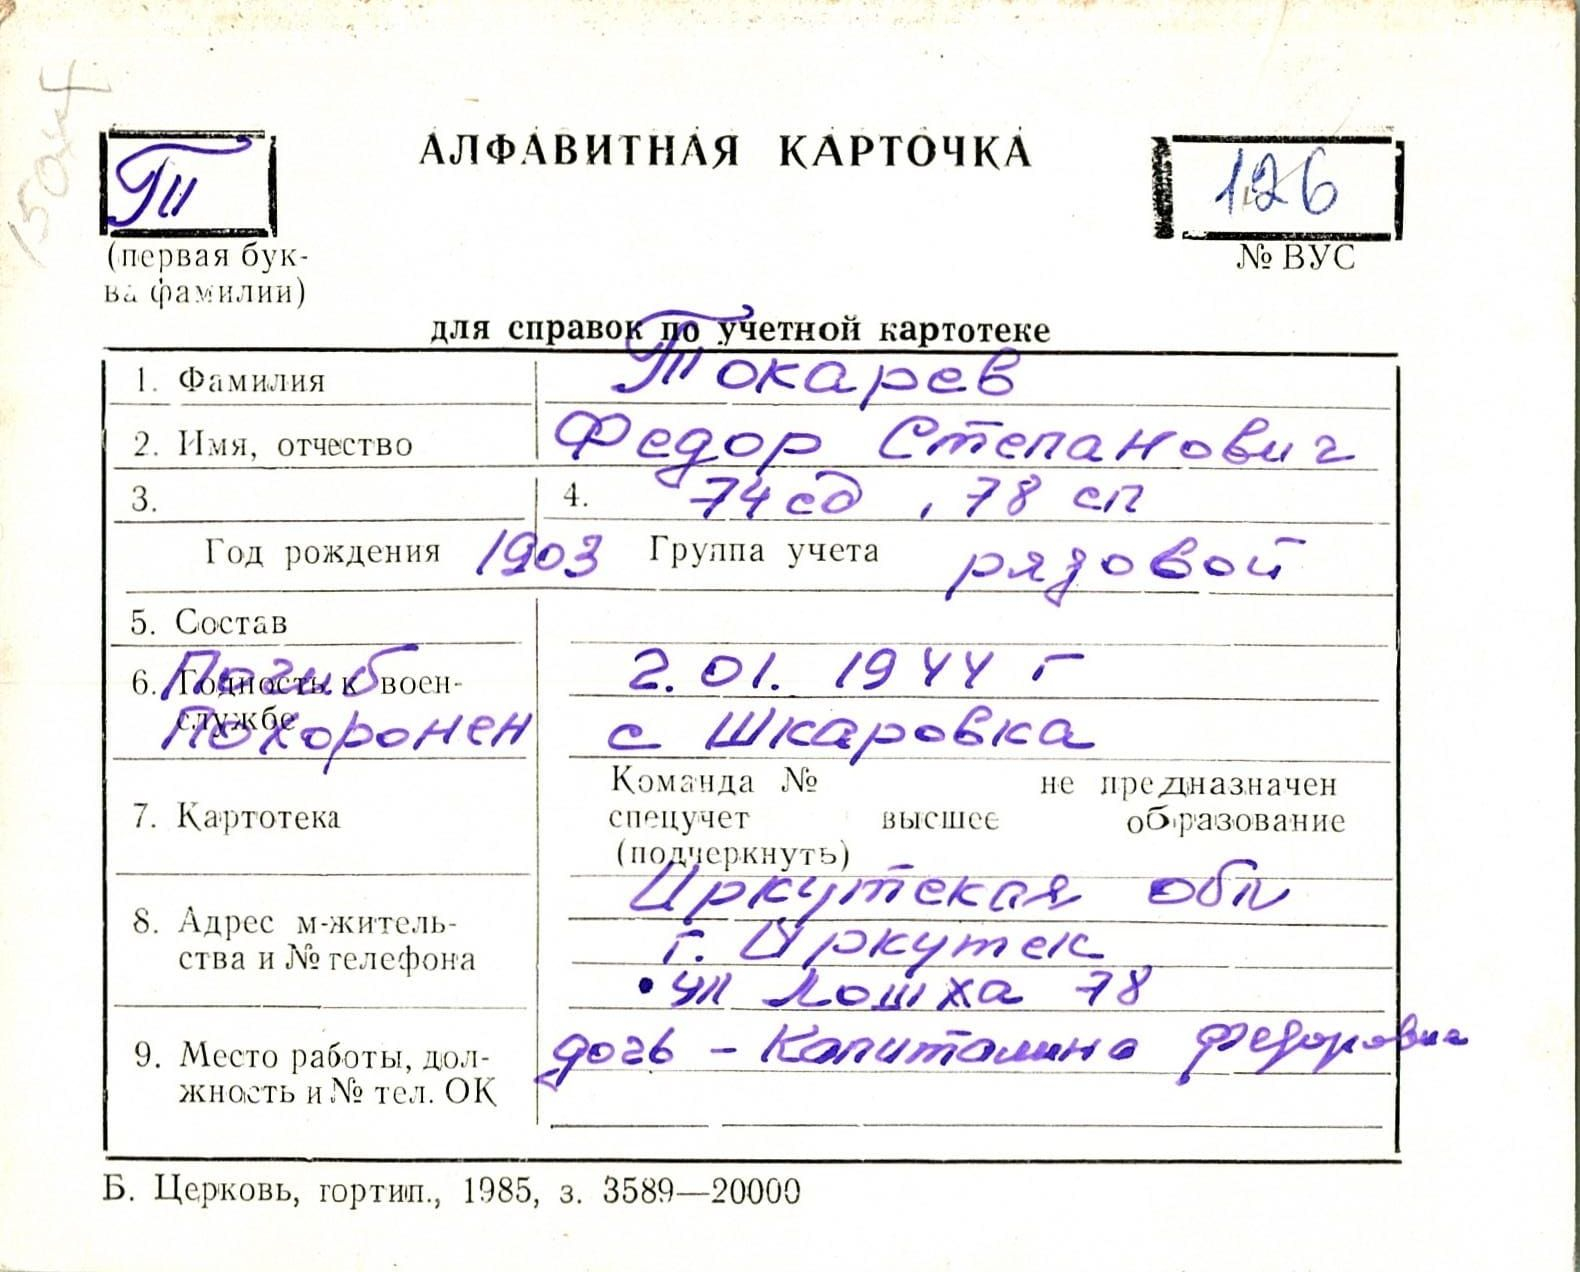 АЛФАВИТНАЯ КАРТОЧКА
Т
126
(первая бук-
ва фамилии)
№ ВУС
для справок по учетной картотеке
1. Фамилия Токарев
2. Имя, отчество Федор Степанович
3. 4. 74 сд, 78 сп
Год рождения 1903 Группа учета рядовой
5. Состав
6. Годность к воен-
службе
Погиб 2.01.1944 г
Похоронен с Шкаровка
7. Картотека
Команда № не предназначен
спецучет высшее образование
(подчеркнуть)
8. Адрес м-житель-
ства и № телефона
Иркутская обл
г. Иркутск
ул 78
9. Место работы, дол-
жность и № тел. ОК
дочь - Капиталина
Б. Церковь, гортип., 1985, з. 3589—20000